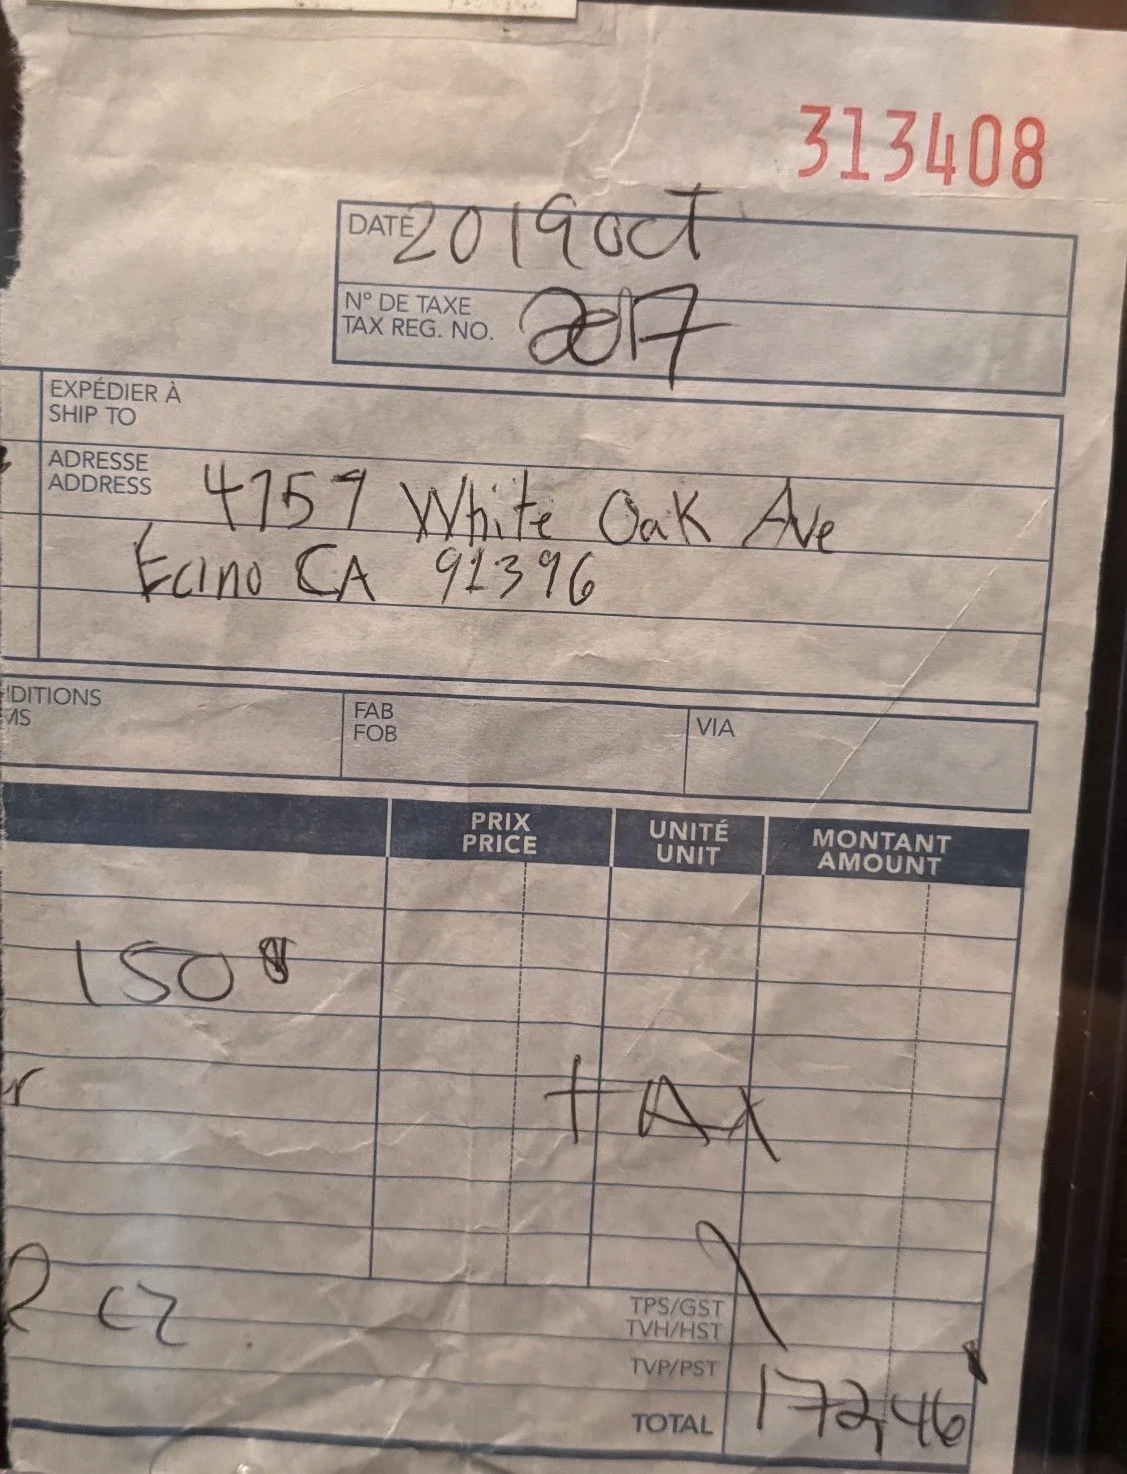 313408
DATE 2019 oct
N° DE TAXE
TAX REG. NO. 2017
EXPÉDIER À
SHIP TO
ADRESSE
ADDRESS
4759 White Oak Ave
Ecino CA 91396
DITIONS
MS
FAB
FOB
VIA
PRIX
PRICE
UNITÉ
UNIT
MONTANT
AMOUNT
150
r
tAx
TPS/GST
TVH/HST
TVP/PST
TOTAL 172,46